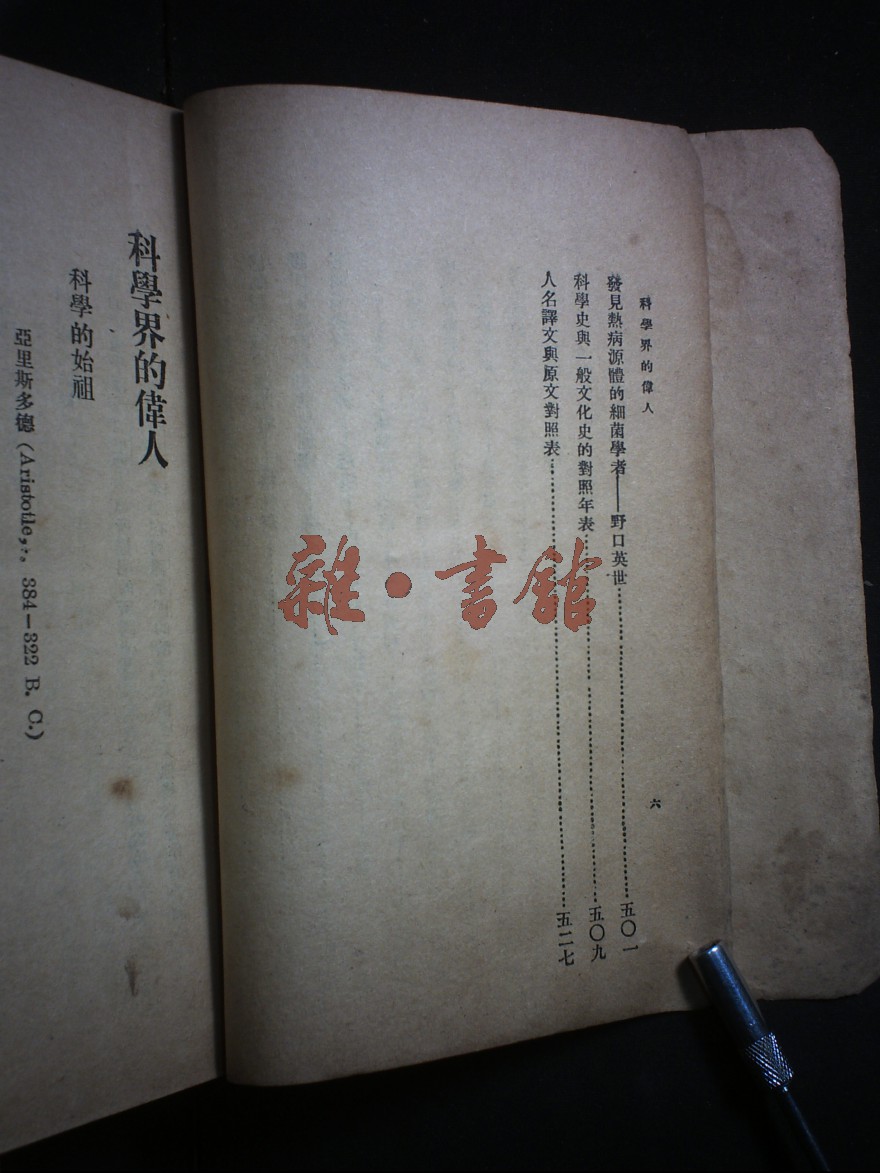 科學界的偉人
發見熱病源體的細菌學者——野口英世……五〇一
科學史與一般文化史的對照年表……五〇九
人名譯文與原文對照表……五二七
六
科學界的偉人
科學的始祖
亞里斯多德(Aristotle, 384—322 B. C.)
雜·書館